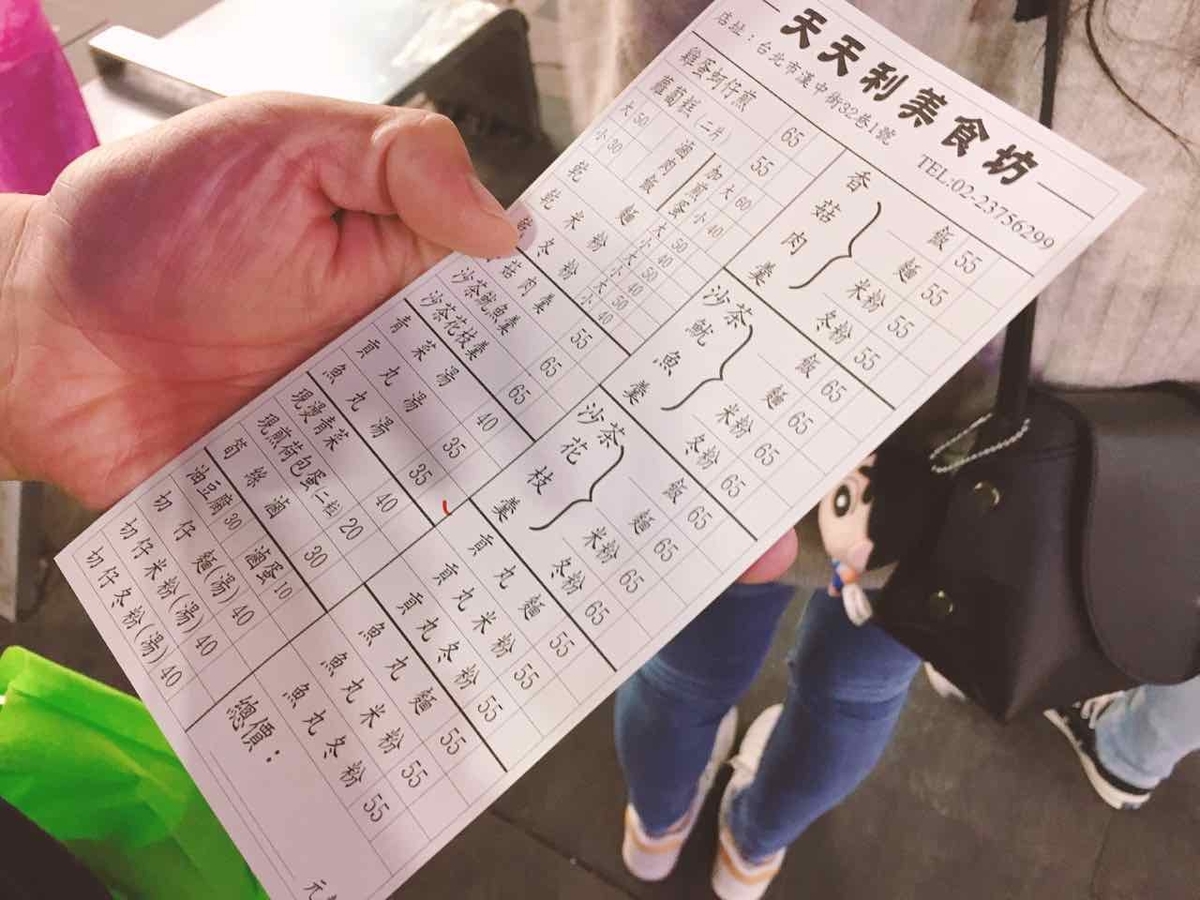 天天利美食坊
店址：台北市漢中街32巷1號
TEL:02-23756299
雞蛋蚵仔煎 65
蘿蔔糕(二片) 55
滷肉飯 大50 小30
加煎蛋 大60 小40
乾麵 大50 小40
乾米粉 大50 小40
乾冬粉 大50 小40
香菇肉羹 55
沙茶魷魚羹 65
沙茶花枝羹 65
青菜湯 40
貢丸湯 35
魚丸湯 35
現燙青菜 40
現煎荷包蛋二粒 20
筍絲滷 30
油豆腐 30 滷蛋 10
切仔麵(湯) 40
切仔米粉(湯) 40
切仔冬粉(湯) 40
香菇肉羹
飯 55
麵 55
米粉 55
冬粉 55
沙茶魷魚羹
飯 65
麵 65
米粉 65
冬粉 65
沙茶花枝羹
飯 65
麵 65
米粉 65
冬粉 65
貢丸麵 55
貢丸米粉 55
貢丸冬粉 55
魚丸麵 55
魚丸米粉 55
魚丸冬粉 55
總價：
元